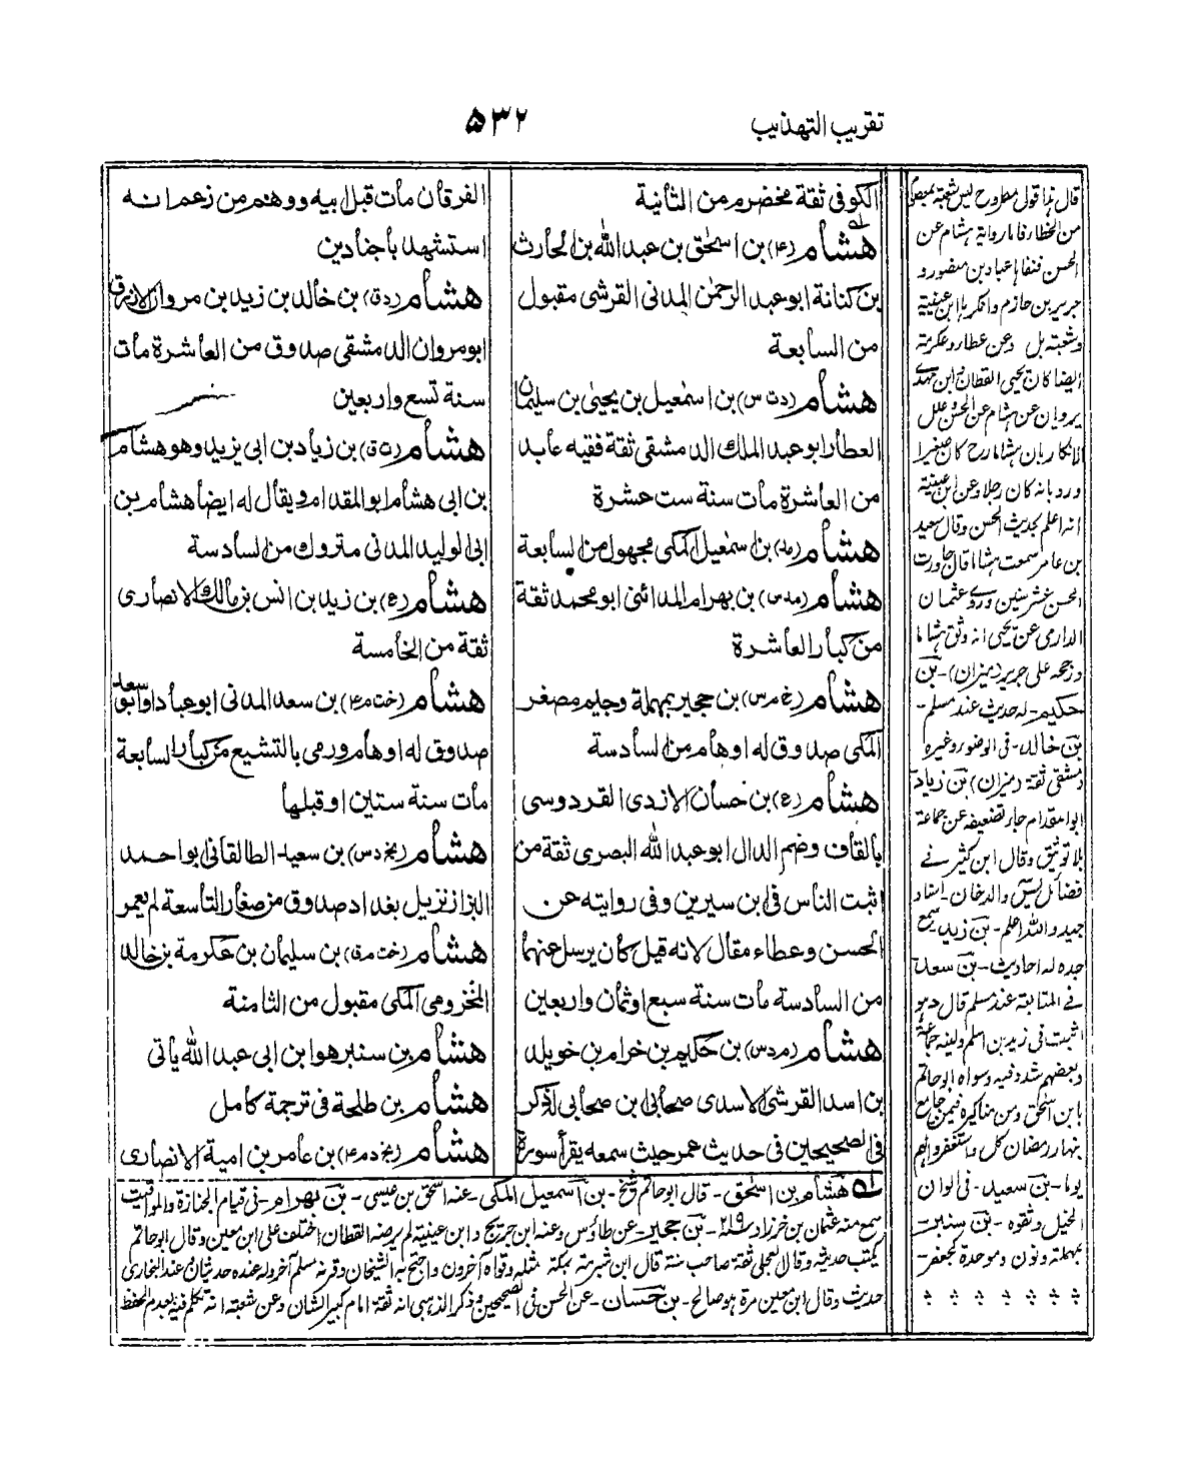 تقريب التهذيب
۵۳۲
الكوفي ثقة مخضرم من الثانية
هشام (۴) بن اسحٰق بن عبد الله بن الحارث
بن كنانة ابو عبد الرحمٰن المدنى القرشى مقبول
من السابعة
هشام (د ت س) بن اسمٰعيل بن يحيىٰ بن سليمان
العطار ابو عبد الملك الدمشقى ثقة فقيه عابد
من العاشرة مات سنة ست عشرة
هشام (مد) بن اسمٰعيل المكى مجهول من السابعة
هشام (مد س) بن بهرام المدائنى ابو محمد ثقة
من كبار العاشرة
هشام (خ م س) بن حجير بمهملة وجيم مصغر
المكى صدوق له اوهام من السادسة
هشام (ع) بن حسان الازدى القردوسى
بالقاف وضم الدال ابو عبد الله البصرى ثقة من
اثبت الناس فى ابن سيرين وفى روايته عن
الحسن وعطاء مقال لانه قيل كان يرسل عنهما
من السادسة مات سنة سبع او ثمان واربعين
هشام (م د س) بن حكيم بن خرام بن خويلد
بن اسد القرشى الاسدى صحابى بن صحابى له ذكر
فى الصحيحين فى حديث عمر حيث سمعه يقرأ سورة
الفرقان مات قبل ابيه ووهم من زعم انه
استشهد باجنادين
هشام (د ق) بن خالد بن زيد بن مروان الازرق
ابو مروان الدمشقى صدوق من العاشرة مات
سنة تسع واربعين
هشام (ت ق) بن زياد بن ابى يزيد وهو هشام
بن ابى هشام ابو المقدام ويقال له ايضاً هشام بن
ابى الوليد المدنى متروك من السادسة
هشام (ع) بن زيد بن انس بن مالك الانصارى
ثقة من الخامسة
هشام (خت م ۴) بن سعد المدنى ابو عباد او ابو سعد
صدوق له اوهام ورمى بالتشيع من كبار السابعة
مات سنة ستين او قبلها
هشام (بخ د س) بن سعيد الطالقانى ابو احمد
البزاز نزيل بغداد صدوق من صغار التاسعة لم يعمر
هشام (خت م ق) بن سليمان بن عكرمة بن خالد
المخزومى المكى مقبول من الثامنة
هشام بن سنبر هو ابن ابى عبد الله ياتى
هشام بن طلحة فى ترجمة كامل
هشام (بخ د م ۴) بن عامر بن امية الانصارى
من الخطاء فاما رواية هشام عن
الحسن فنفاها عباد بن منصور و
جرير بن حازم وانكرها ابن عيينة
وشعبة بل وعن عطاء وعكرمة
ايضا كان يحيى القطان وابن مهدى
يرويان عن هشام عن الحسن
ورد بانه كان رجلا وعن ابن عيينة
انه اعلم بحديث الحسن وقال سعيد
بن عامر سمعت هشاما قال جاورت
الحسن عشر سنين وروى عثمان
الدارمى عن يحيى انه وثق هشاما
ورجحه على جرير (ميزان) - بن
حكيم - له حديث عند مسلم -
بن خالد - فى الوضوء وغيره
دمشقى ثقة (ميزان) بن زياد
ابو المقدام جاء تضعيفه عن جماعة
بلا توثيق وقال ابن كثير فى
فضائل يٰس والدخان - اسناد
جيد والله اعلم - بن زيد سمع
جده له احاديث - بن سعد
فى المتابعة عند مسلم قال د هو
اثبت فى زيد بن اسلم ولينه جماعة
وبعضهم شدد فيه وسواه ابو حاتم
بابن اسحٰق ومن مناكيره فيمن جامع
بنهار رمضان كل واستغفر وصم
يوما - بن سعيد - فى الوان
الخيل وثقوه - بن سنبر -
بمهملة ونون وموحدة كجعفر -
له هشام بن اسحٰق - قال ابو حاتم شيخ - بن اسمعيل المكى - عنه اسحٰق بن عيسى - بن بهرام - فى قيام الجنازة والمواقيت
سمع منه عثمان بن خرزاد ۲۱۹ - بن حجير - عن طاؤس وعنه ابن جريج وابن عيينة لم يرضه القطان اختلف على ابن معين وقال ابو حاتم
يكتب حديثه وقال العجلى ثقة صاحب سنة قال ابن شبرمة بمكة مثله وقواه آخرون واحتج به الشيخان وقرنه مسلم بآخر وله عنده حديثان عند البخارى
حديث وقال ابن معين مرة هو صالح - بن حسان - عن الحسن فى الصحيحين وذكر الذهبى انه ثقة امام كبير الشان وعن شعبة انه تكلم فيه بعدم الحفظ